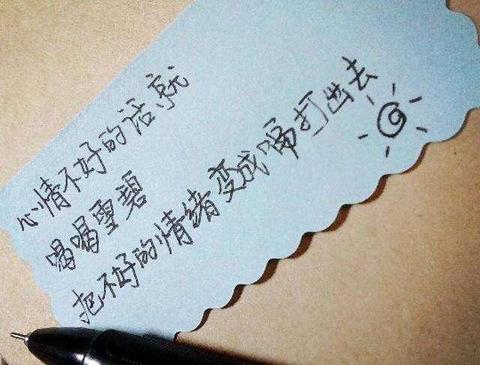 心情不好的话就
喝喝雪碧
把不好的情绪变成嗝打出去